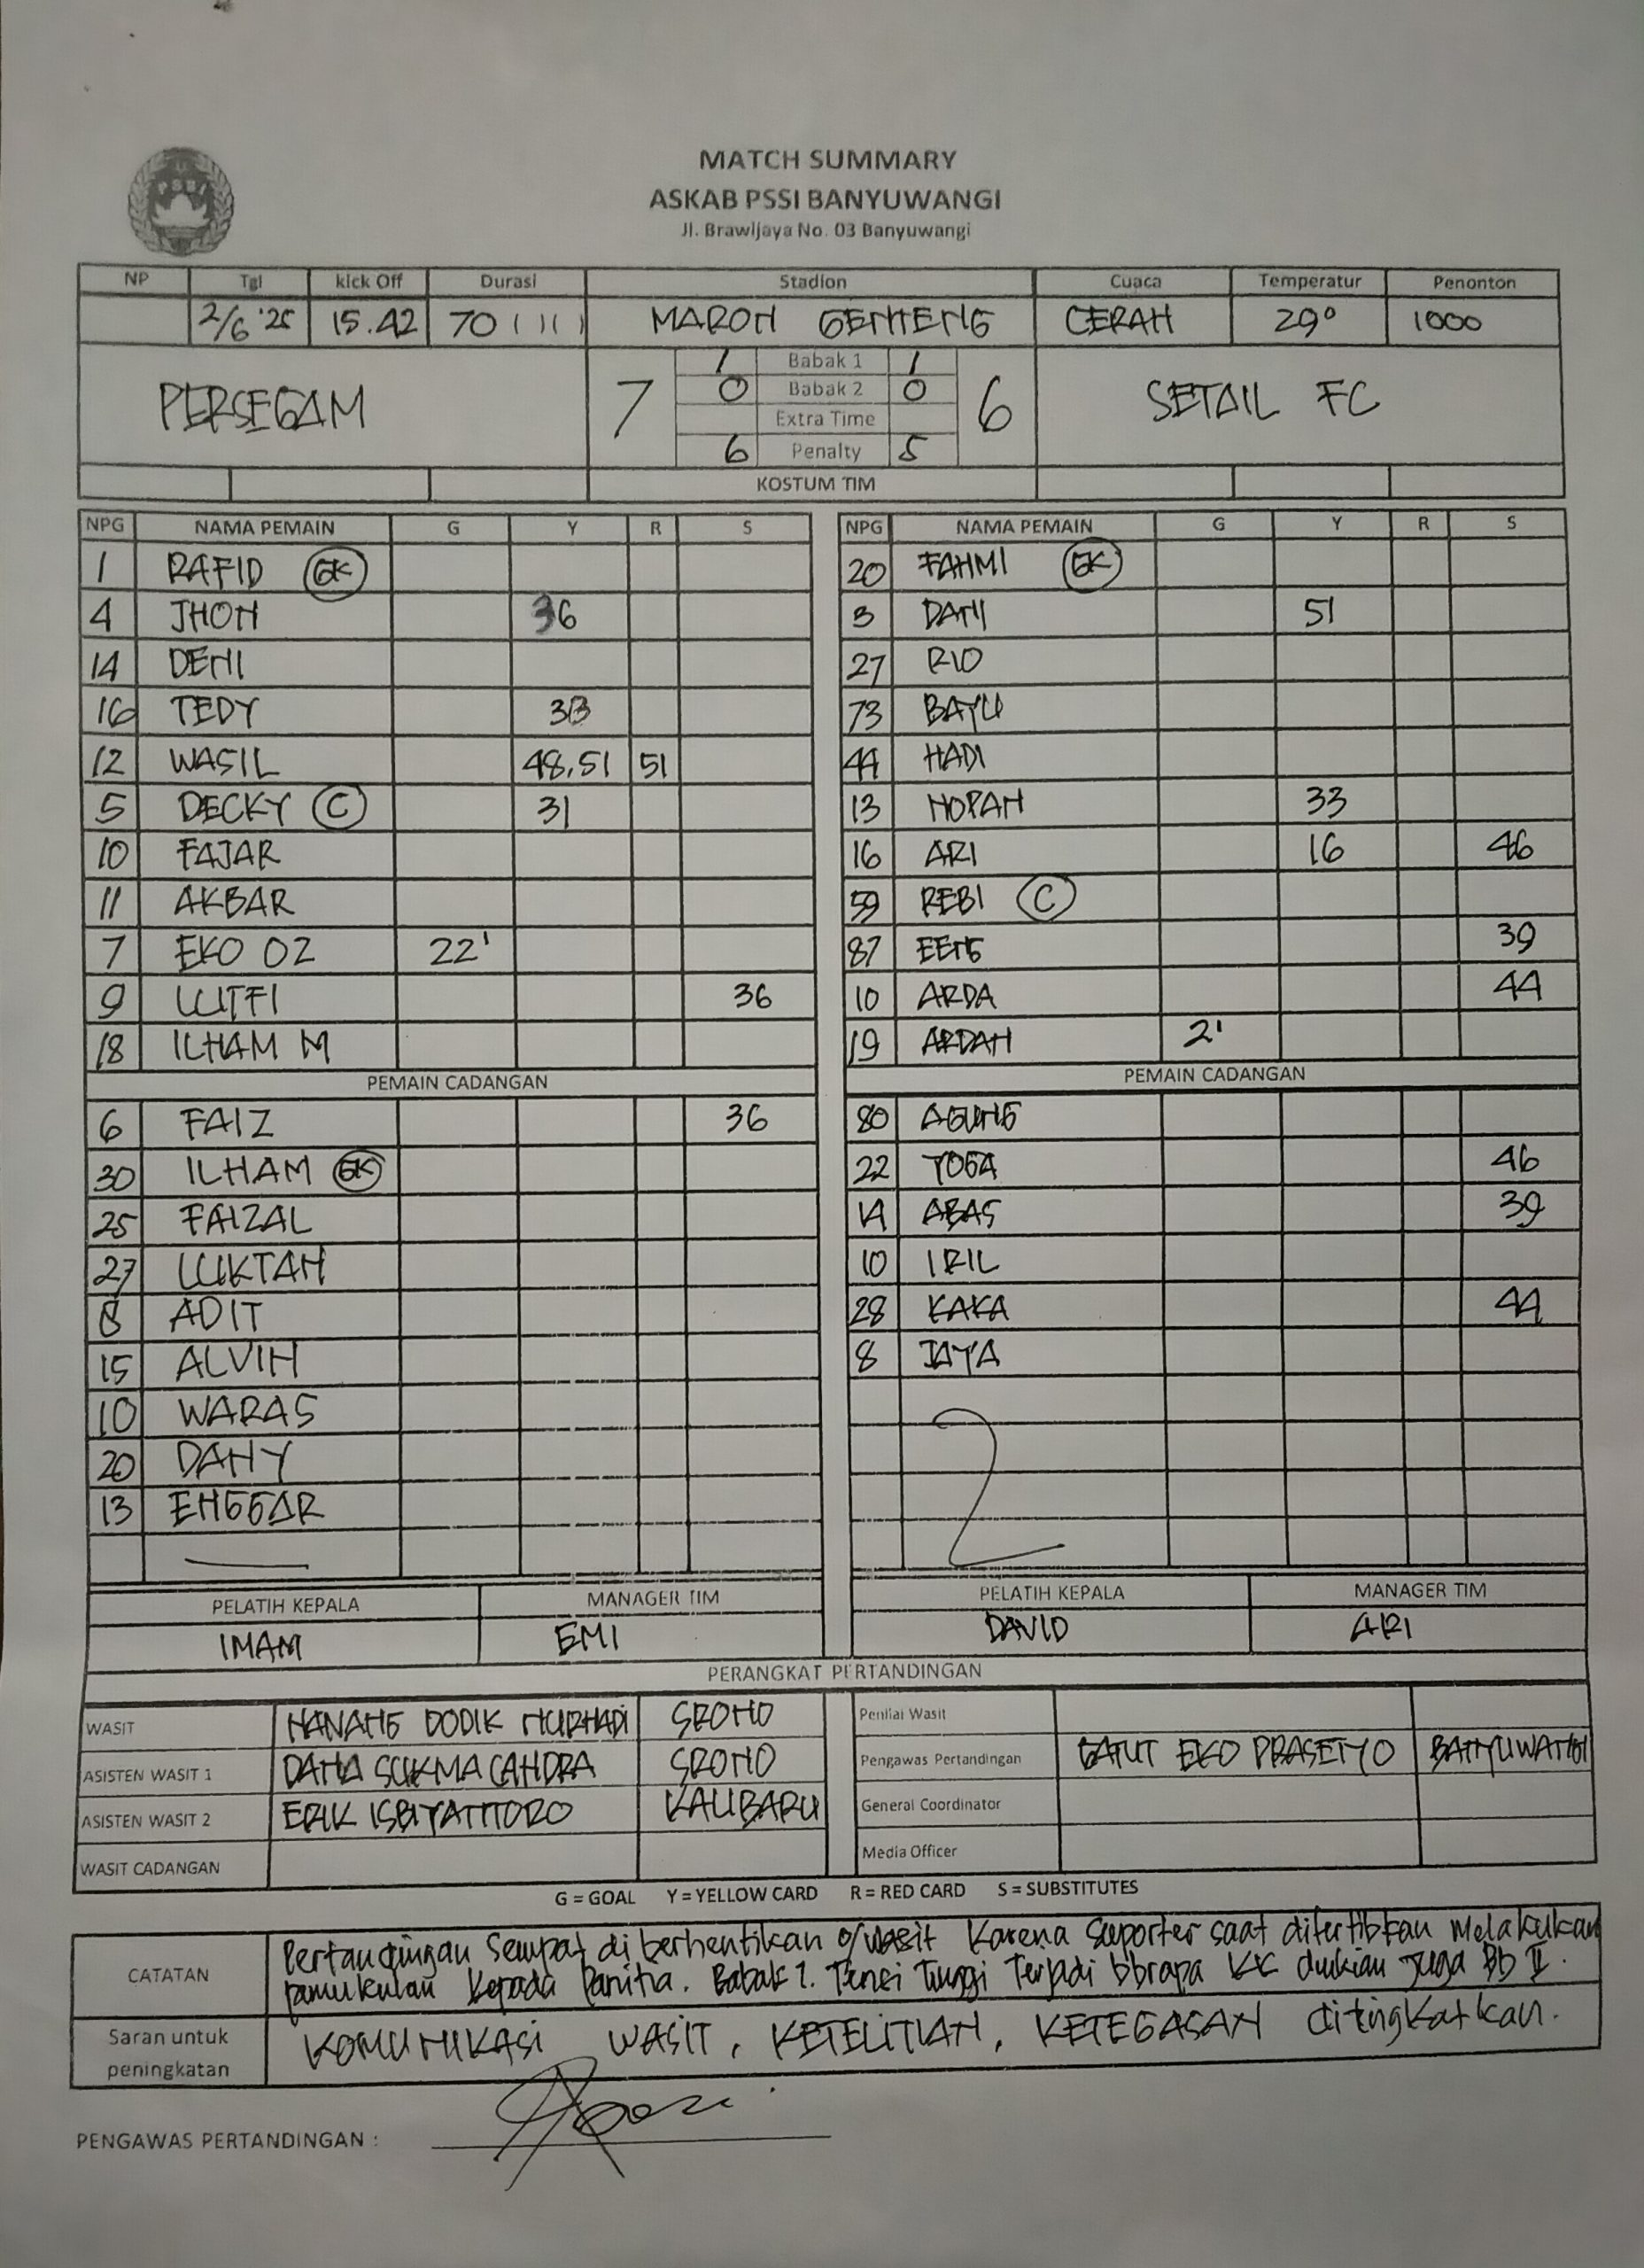 PSSI
MATCH SUMMARY
ASKAB PSSI BANYUWANGI
Jl. Brawijaya No. 03 Banyuwangi
NP Tgl kick Off Durasi Stadion Cuaca Temperatur Penonton
2/6 '25 15.42 70 MARON GENTENG CERAH 29° 1000
PERSEGAM 7 6 SETAIL FC
1 Babak 1 1
0 Babak 2 0
Extra Time
6 Penalty 5
KOSTUM TIM
NPG NAMA PEMAIN G Y R S
1 RAFID GK
4 JHON 36
14 DENI
16 TEDY 33
12 WASIL 48,51 51
5 DECKY C 31
10 FAJAR
11 AKBAR
7 EKO OZ 22'
9 LUTFI 36
18 ILHAM M
PEMAIN CADANGAN
6 FAIZ 36
30 ILHAM GK
25 FAIZAL
27 LUKTAN
8 ADIT
15 ALVIN
10 WARAS
20 DANY
13 ENGGAR
PELATIH KEPALA MANAGER TIM
IMAM EMI
NPG NAMA PEMAIN G Y R S
20 FAHMI GK
3 DANI 51
27 RIO
73 BAYU
44 HADI
13 NOPAN 33
16 ARI 16 46
59 REBI C
87 EENG 39
10 ARDA 44
19 ARDAN 2'
PEMAIN CADANGAN
80 AGUNG
22 YOGA 46
14 ABAS 39
10 IRIL
28 KAKA 44
8 JAYA
PELATIH KEPALA MANAGER TIM
DAVID ARI
PERANGKAT PERTANDINGAN
WASIT NANANG DODIK NURHADI SRONO
ASISTEN WASIT 1 DANA SUKMA CANDRA SRONO
ASISTEN WASIT 2 ERIK ISBIYANTORO KALIBARU
WASIT CADANGAN
Penilai Wasit
Pengawas Pertandingan GATUT EKO PRASETYO BANYUWANGI
General Coordinator
Media Officer
G = GOAL Y = YELLOW CARD R = RED CARD S = SUBSTITUTES
CATATAN
Pertandingan sempat di berhentikan o/ wasit Karena Suporter saat ditertibkan Melakukan
pemukulan Kepada Panitia. Babak 1. Tensi Tinggi Terjadi bbrapa KK dmkian juga Bb II.
Saran untuk peningkatan
KOMUNIKASI WASIT, KETELITIAN, KETEGASAN ditingkatkan.
PENGAWAS PERTANDINGAN :